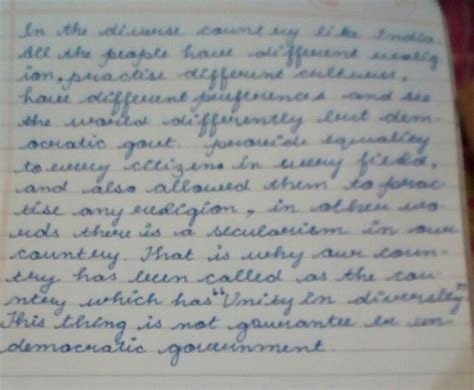 In the diverse country like India.
All the people have different relig
ion, practise different cultures,
have different preferences and see
the world differently but dem-
ocratic govt. provide equality
to every citizen in every field,
and also allowed them to prac
tise any religion, in other wo
rds there is a secularism in our
country. That is why our coun-
try has been called as the cou-
ntry which has "Unity in diversity"
This thing is not gaurantee in un-
democratic government.